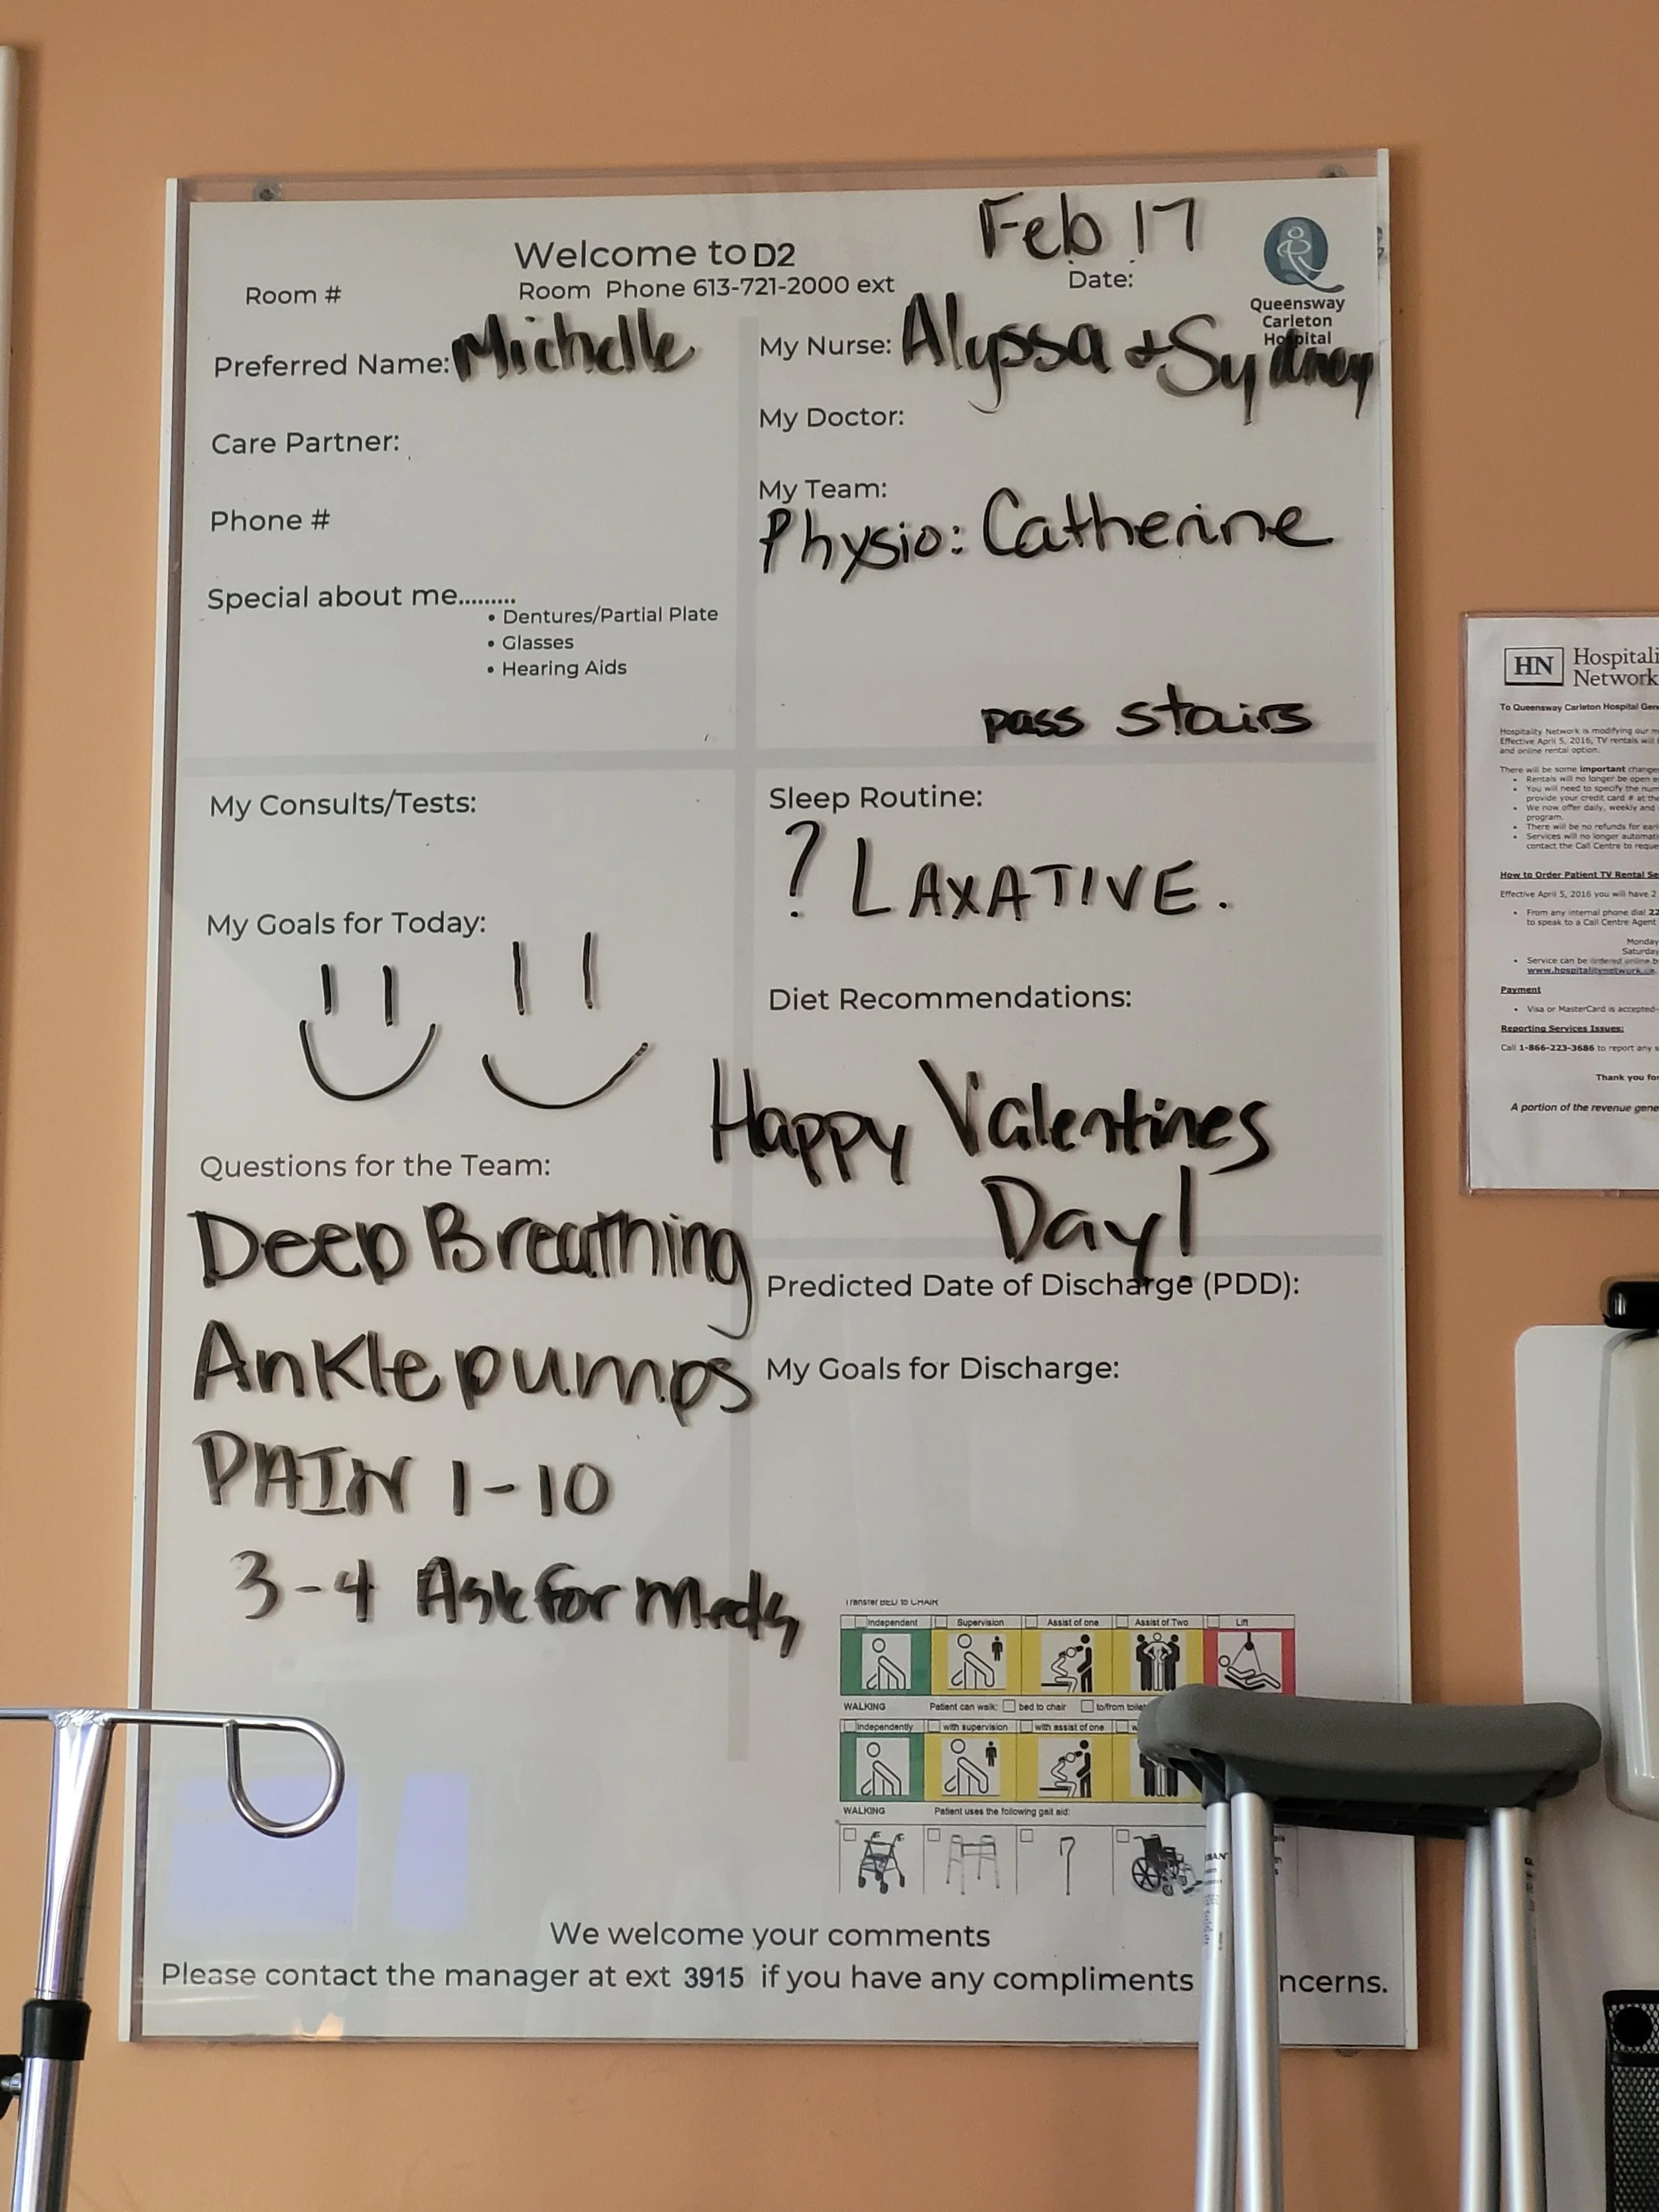 Feb 17
Welcome to D2
Room Phone 613-721-2000 ext
Date:
Room #
Queensway
Carleton
Hospital
Preferred Name: Michelle
My Nurse: Alyssa + Sydney
Care Partner:
My Doctor:
Phone #
My Team:
Physio: Catherine
Special about me.........
• Dentures/Partial Plate
• Glasses
• Hearing Aids
pass stairs
My Consults/Tests:
My Goals for Today:
Sleep Routine:
? LAXATIVE.
Diet Recommendations:
Happy Valentines
Day!
Questions for the Team:
Deep Breathing
Ankle pumps
PAIN 1-10
3-4 Ask for Meds
Predicted Date of Discharge (PDD):
My Goals for Discharge:
Transfer BED to CHAIR
Independent Supervision Assist of one Assist of Two Lift
WALKING Patient can walk: bed to chair to/from toilet
Independently with supervision with assist of one
WALKING Patient uses the following gait aid:
We welcome your comments
Please contact the manager at ext 3915 if you have any compliments ncerns.
HN Hospitali
Network
To Queensway Carleton Hospital Gen
Hospitality Network is modifying our m
Effective April 5, 2016, TV rentals will
and online rental option.
There will be some important changes
• Rentals will no longer be open e
• You will need to specify the num
provide your credit card # at the
• We now offer daily, weekly and
program.
• There will be no refunds for earl
• Services will no longer automati
contact the Call Centre to reque
How to Order Patient TV Rental Se
Effective April 5, 2016 you will have 2
• From any internal phone dial 22
to speak to a Call Centre Agent
Monday
Saturday
• Service can be ordered online b
www.hospitalitynetwork.ca.
Payment
• Visa or MasterCard is accepted-
Reporting Services Issues:
Call 1-866-223-3686 to report any s
Thank you for
A portion of the revenue gene